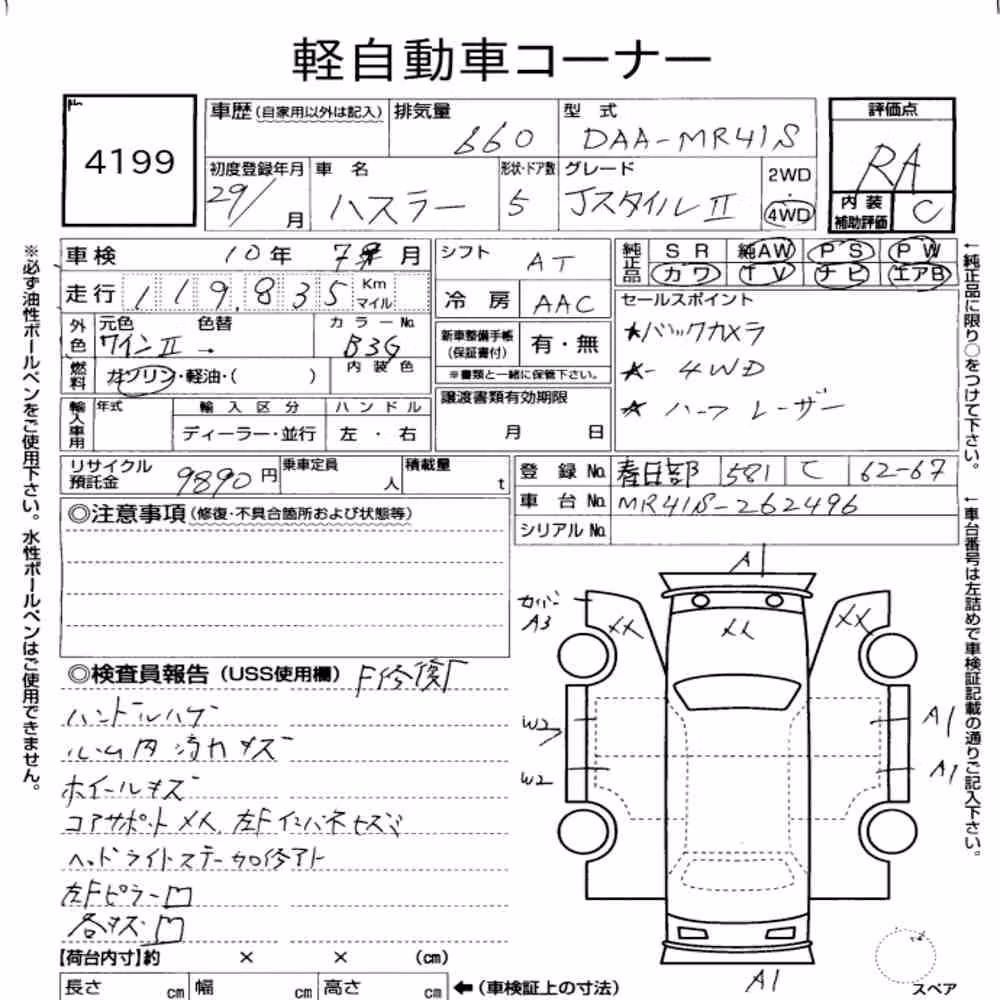 軽自動車コーナー
4199
車歴 (自家用以外は記入) 排気量 660 型式 DAA-MR41S 評価点 RA
初度登録年月 29/ 月 車名 ハスラー 形状・ドア数 5 グレード JスタイルⅡ 2WD・4WD 内装補助評価 C
車検 10年 7月 シフト AT 純正品 SR 純AW PS PW
走行 119,835 Km マイル 冷房 AAC カワ TV ナビ エアB
外色 元色 ワインⅡ 色替 カラーNo. B3G 新車整備手帳(保証書付) 有・無 セールスポイント
燃料 ガソリン・軽油・( ) 内装色 ※書類と一緒に保管下さい。 ★バックカメラ
★ 4WD
輸入車用 年式 輸入区分 ハンドル 譲渡書類有効期限 ★ ハーフレーザー
ディーラー・並行 左・右 月 日
リサイクル預託金 9890円 乗車定員 人 積載量 t 登録No. 春日部 581 62-67
車台No. MR41S-262496
シリアルNo.
◎注意事項 (修復・不具合箇所および状態等)
◎検査員報告 (USS使用欄) F修復
ハンドルハゲ
ルーム内汚れキズ
ホイールキズ
コアサポートメメ、左Fインパネセズミ
ヘッドライトステー加修アト
左Fピラー凹
各キズ凹
A1
カバー A3
メメ メメ メメ
W2 A1
W2 A1
A1
スペア
【荷台内寸】約 × × (cm)
長さ cm 幅 cm 高さ cm ←(車検証上の寸法)
※必ず油性ボールペンをご使用下さい。水性ボールペンはご使用できません。
←純正品に限り○をつけて下さい。
←車台番号は左詰めで車検証記載の通りご記入下さい。